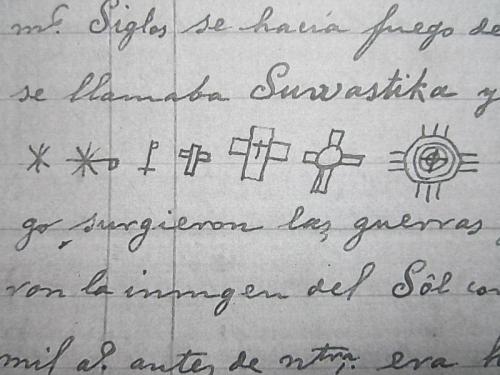 ms. Siglos se hacía fuego de
se llamaba Suwastika y
go, surgieron las guerras
ron la inmgen del Sôl con
mil as. antes de ntra. era h